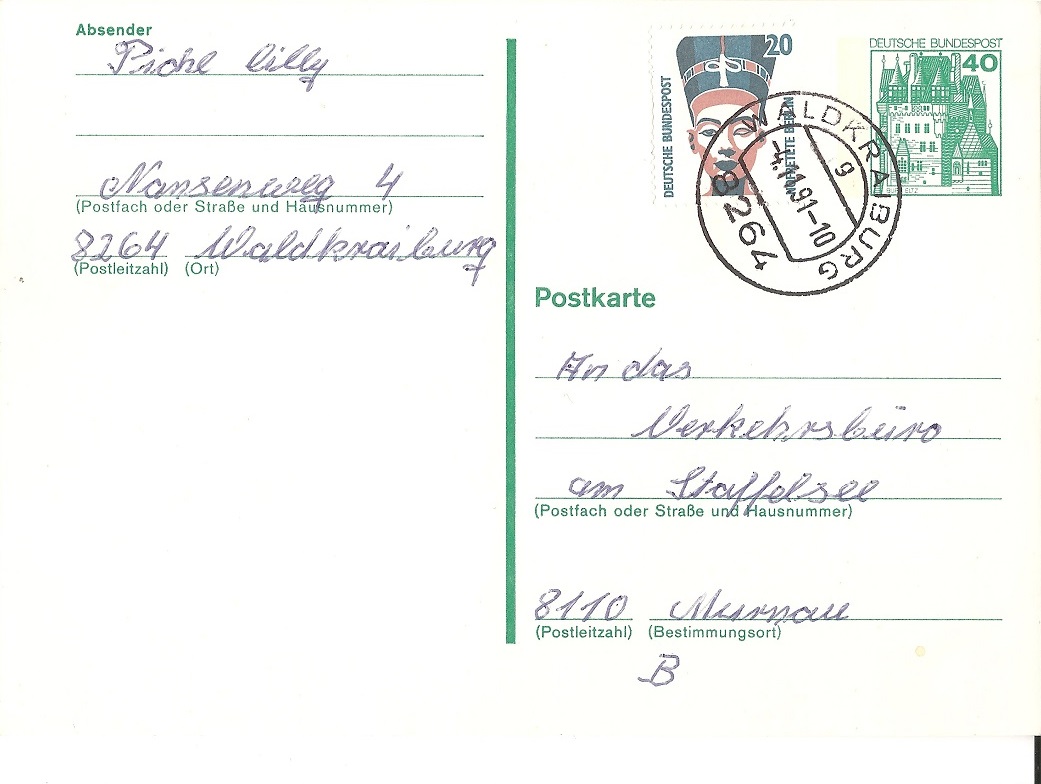 Absender
Pichl Cilly
Nansenweg 4
(Postfach oder Straße und Hausnummer)
8264 Waldkraiburg
(Postleitzahl) (Ort)
20
DEUTSCHE BUNDESPOST
NOFRETETE BERLIN
DEUTSCHE BUNDESPOST
40
BURG ELTZ
WALDKRAIBURG
g
-4.11.91-10
8264
Postkarte
An das
Verkehrsbüro
am Staffelsee
(Postfach oder Straße und Hausnummer)
8110 Murnau
(Postleitzahl) (Bestimmungsort)
B